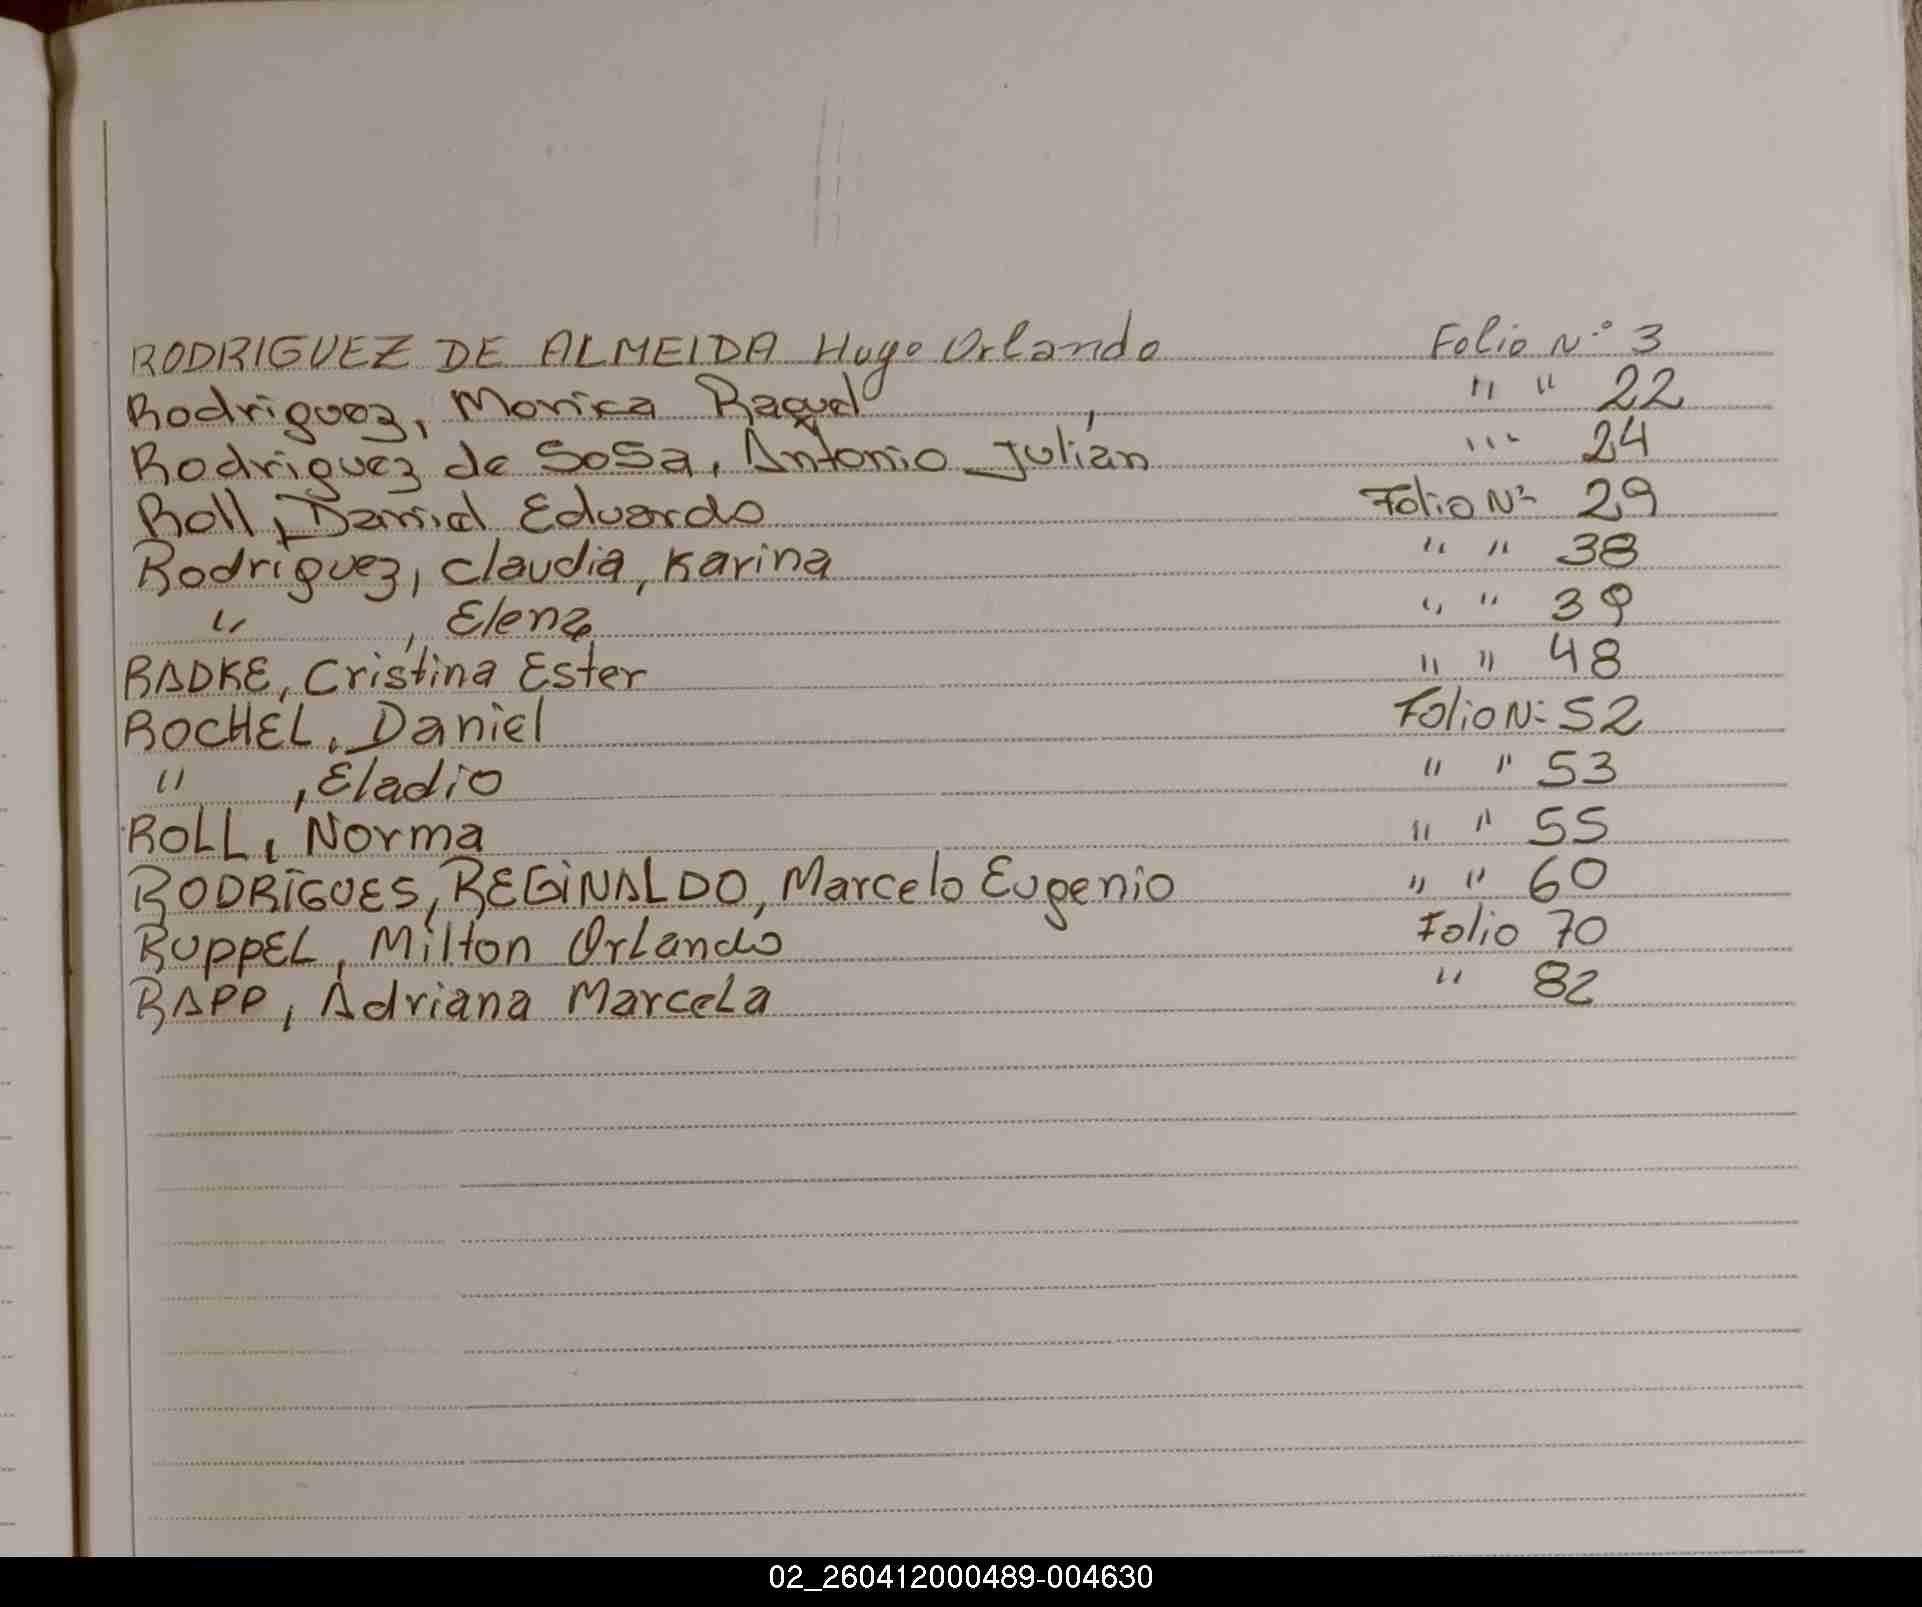 RODRIGUEZ DE ALMEIDA Hugo Orlando Folio Nº 3
Rodriguez, Monica Raquel " " 22
Rodriguez de Sosa, Antonio Julián " " 24
Roll, Daniel Eduardo Folio Nº 29
Rodríguez, Claudia, Karina " " 38
" , Elena " " 39
RADKE, Cristina Ester " " 48
ROCHEL, Daniel Folio Nº 52
" , Eladio " " 53
ROLL, Norma " " 55
RODRÍGUES, REGINALDO, Marcelo Eugenio " " 60
RUPPEL, Milton Orlando Folio 70
RAPP, Adriana Marcela " 82
02_260412000489-004630